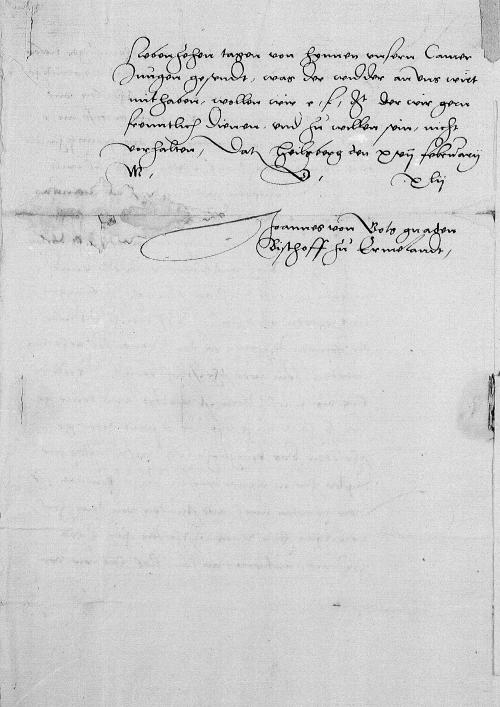 siebenzehen tagen von hynnen unsern Camer
Jungen gesandt, was der widder an uns wirt
mithaben, wollen wir e. f. Jt der wir gern
freuntlich dienen und zu willen sein, nicht
vorhalten, Dat Heilsberg den xvij february
M. D. xlij
Joannes von Gots gnaden
Bischoff zu Ermelandt,